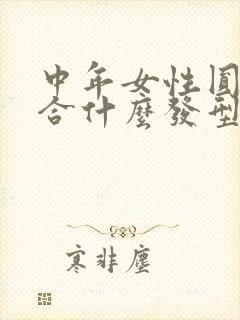 中年女性圓
合什麼發型
寒非塵